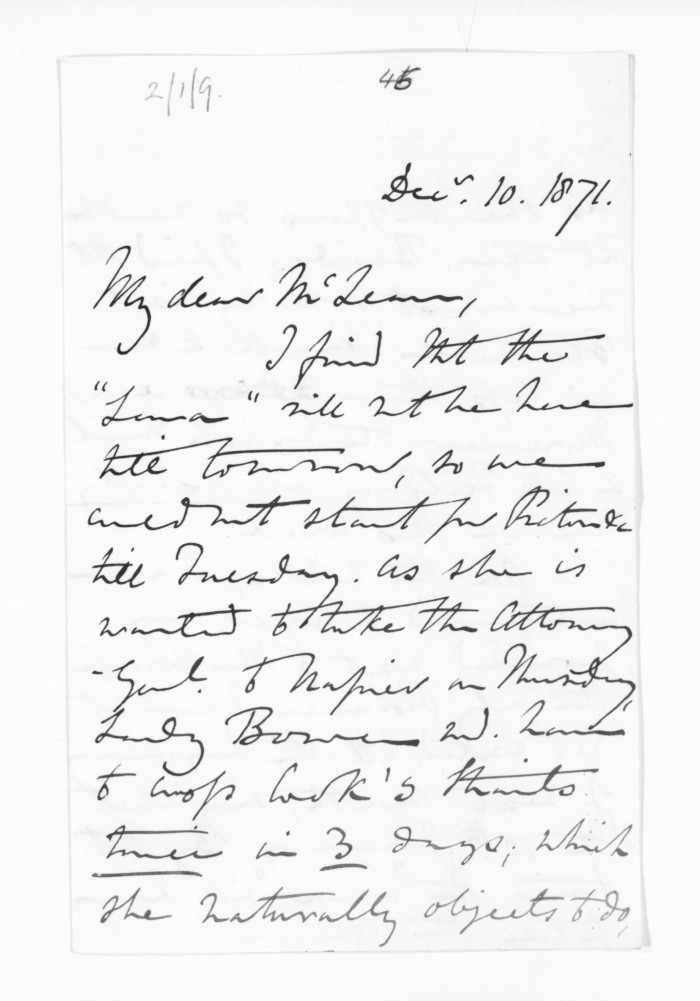 2/1/9.
46
Decr. 10. 1871.
My dear McLean,
I find tht the
"Luna" will nt be here
till tomorrow, so we
could nt start for Picton &c
till Tuesday. As she is
wanted to take the Attorney
-Genl. to Napier on Thursday
Lady Bowen wd. have
to cross Cook's Straits
twice in 3 days; which
she naturally objects to do,